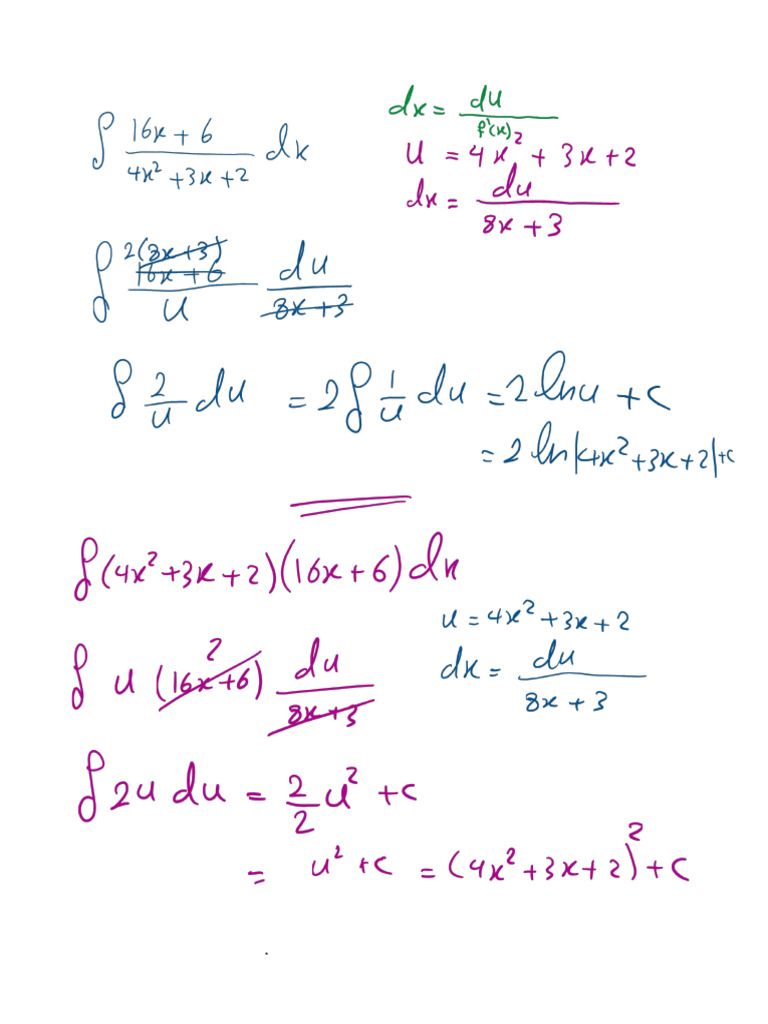 ∫ (16x + 6)/(4x² + 3x + 2) dx
dx = du/f'(x)
u = 4x² + 3x + 2
dx = du/(8x + 3)
∫ 2(8x+3) 16x + 6/u du/(8x+3)
∫ 2/u du = 2∫ 1/u du = 2 ln u + c
= 2 ln|4x² + 3x + 2| + c
∫ (4x² + 3x + 2)(16x + 6) dx
u = 4x² + 3x + 2
dx = du/(8x + 3)
∫ u (16x+6) 2 du/(8x+3)
∫ 2u du = 2/2 u² + c
= u² + c = (4x² + 3x + 2)² + c